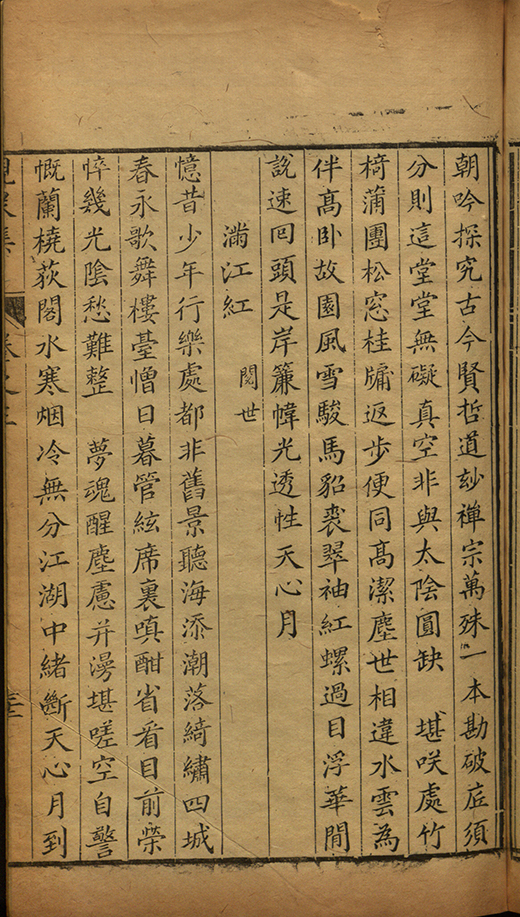 朝吟探究古今賢哲道玅禅宗萬殊一本勘破应須
分則這堂堂無礙真空非與太陰圓缺　堪咲處竹
椅蒲團松窓桂牖返步便同高潔塵世相違水雲為
伴高卧故園風雪駿馬貂裘翠袖紅螺過目浮華閒
説速囘頭是岸簾幃光透性天心月
滿江紅　閱世
憶昔少年行樂處都非舊景聽海添潮落綺繡四城
春永歌舞樓臺憎日暮管絃席裏嗔酣省看目前榮
悴幾光陰愁難整　夢魂醒塵慮幷漫堪嗟空自警
慨蘭橈荻閣水寒烟冷無分江湖中緒斷天心月到
集